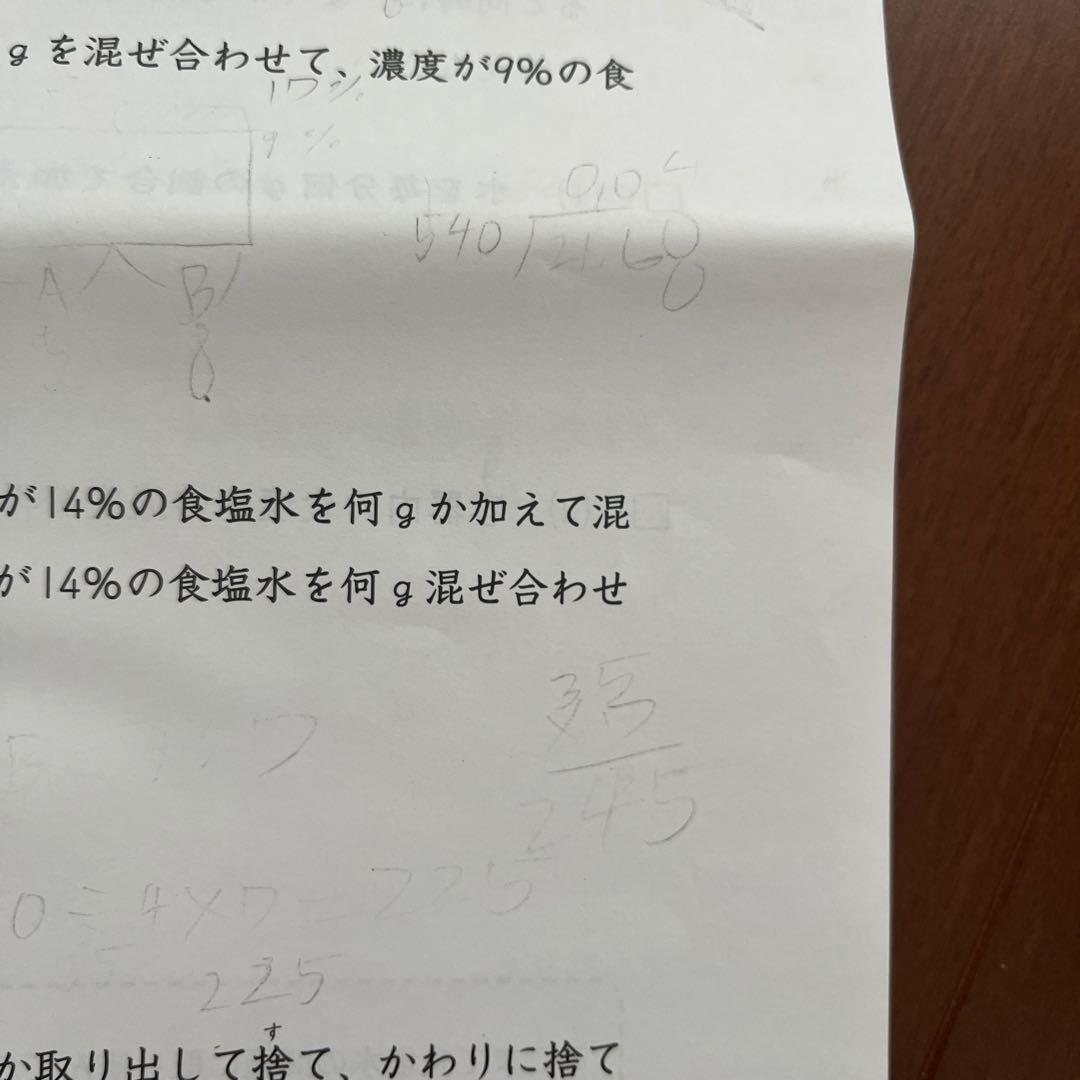 gを混ぜ合わせて、濃度が9%の食
17%
9%
0.04
540 21.60
0
A B
8
が14%の食塩水を何gか加えて混
が14%の食塩水を何g混ぜ合わせ
35
7
245
0÷4×7=225
225
す
か取り出して捨て、かわりに捨て